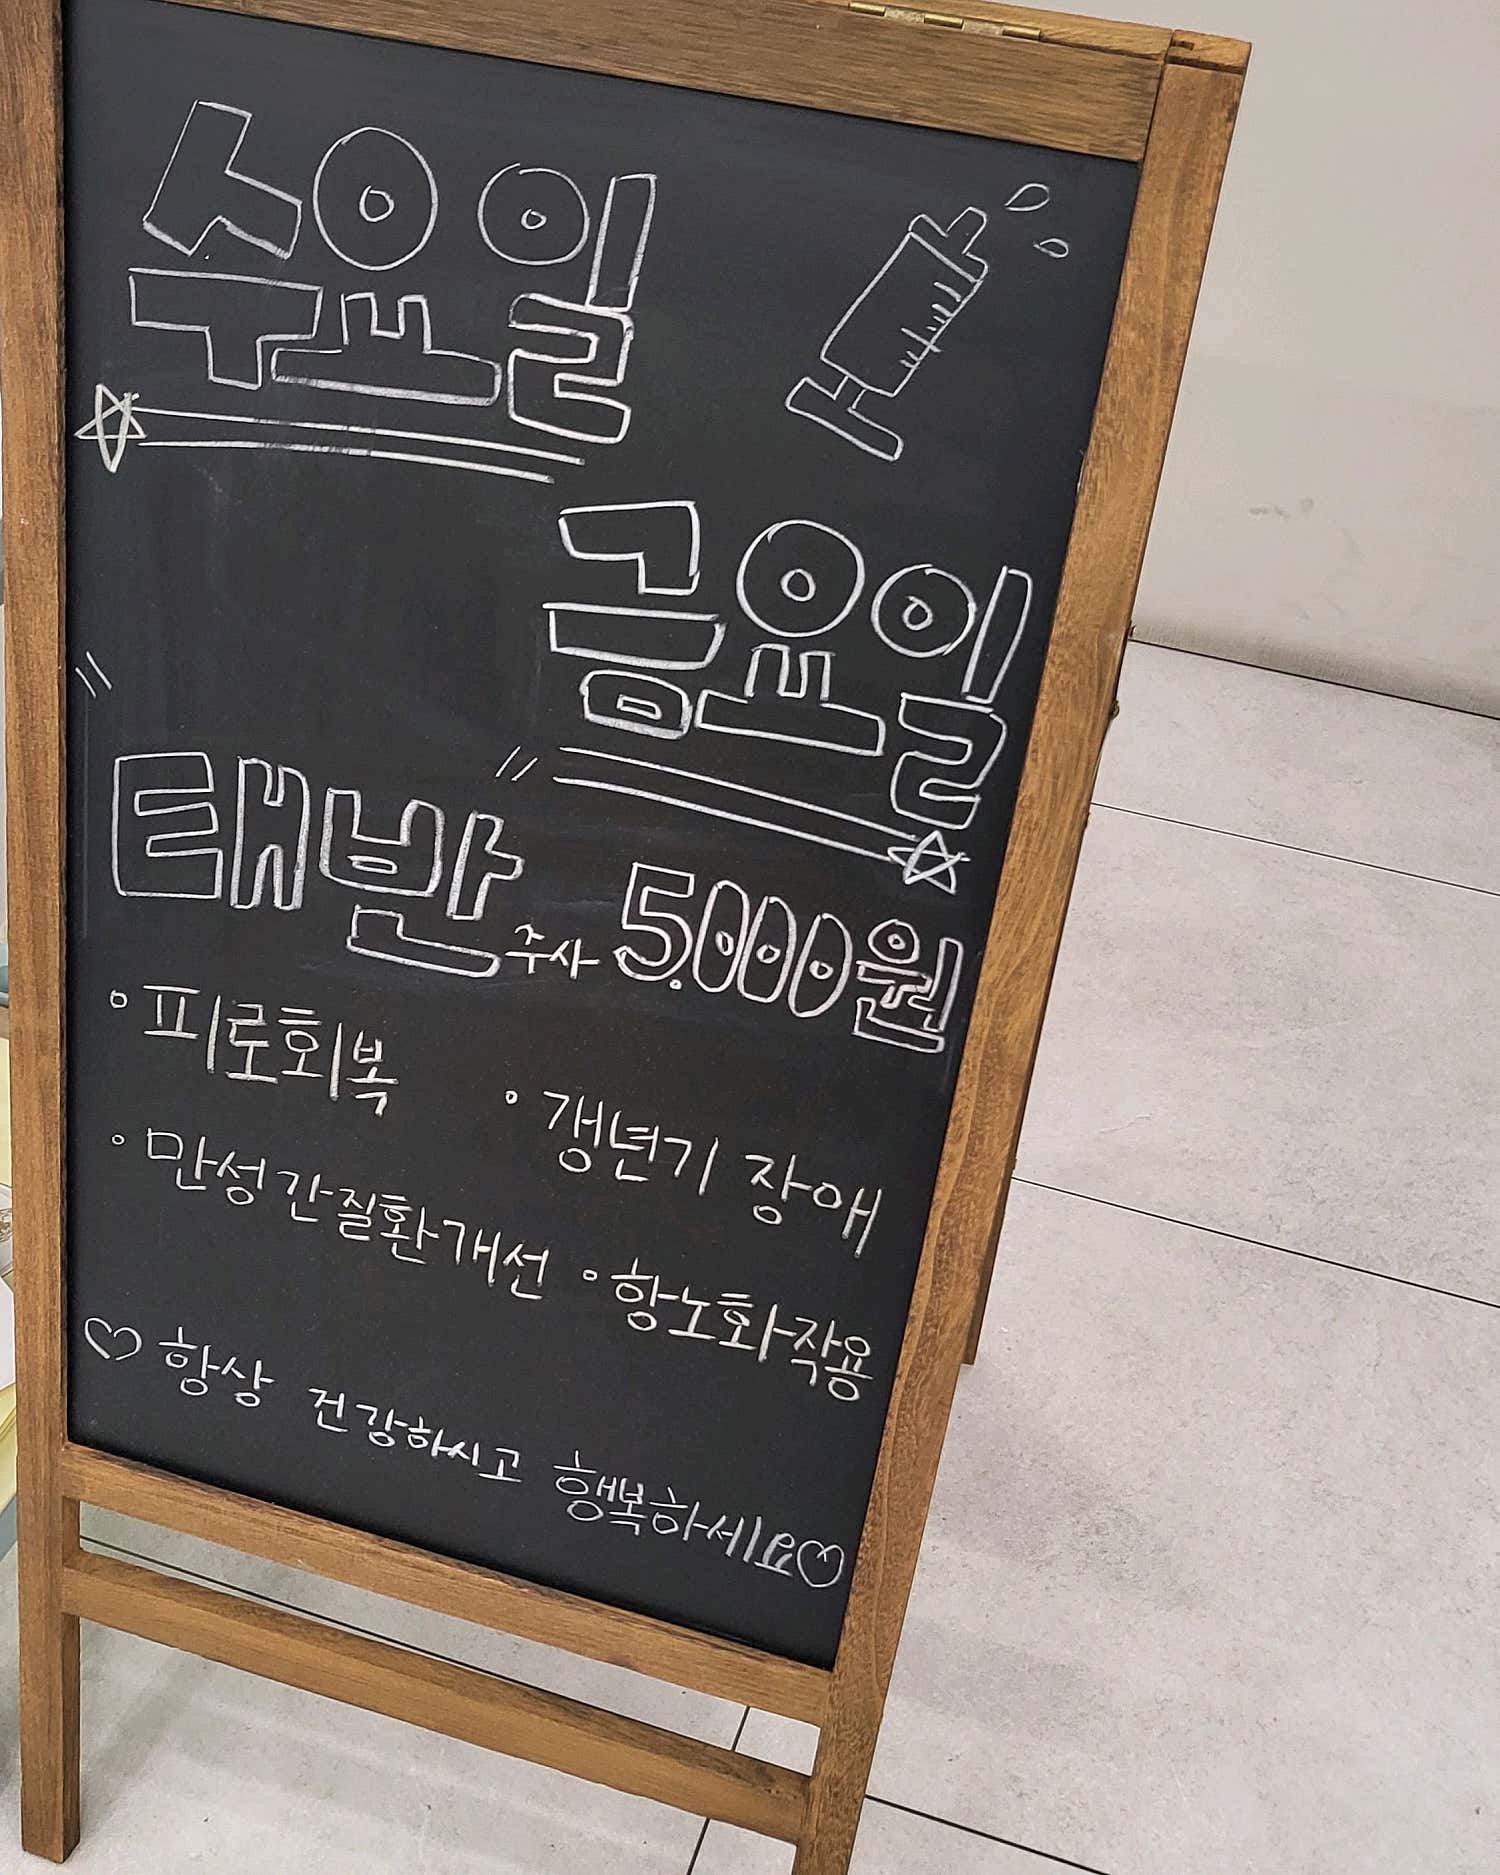 수요일
금요일
태반 주사 5.000원
◦ 피로회복
◦ 갱년기 장애
◦ 만성 간질환개선
◦ 항노화작용
♡ 항상 건강하시고 행복하세요♡